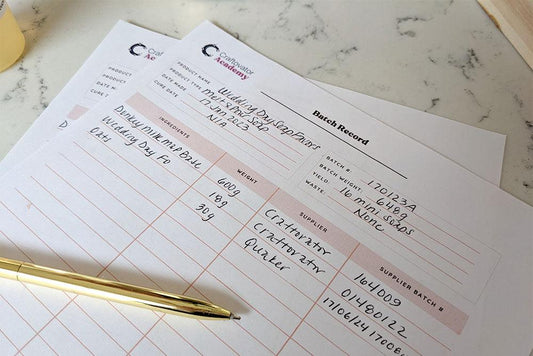 Craftovator
Academy
Batch Record
PRODUCT NAME Wedding Day Soap Favors
PRODUCT TYPE Melt & Pour Soap
DATE MADE 17 Jan 2023
CURE DATE N/A
BATCH # 170123A
BATCH WEIGHT: 648g
YIELD: 16 mini soaps
WASTE: None
INGREDIENTS WEIGHT SUPPLIER SUPPLIER BATCH #
Donkey Milk M&P Base 600g Craftovator 164009
Wedding Day FO 18g Craftovator 01480122
Oats 30g Quaker 17/06/24
Academy
PRODUCT
PRODUCT
CURE